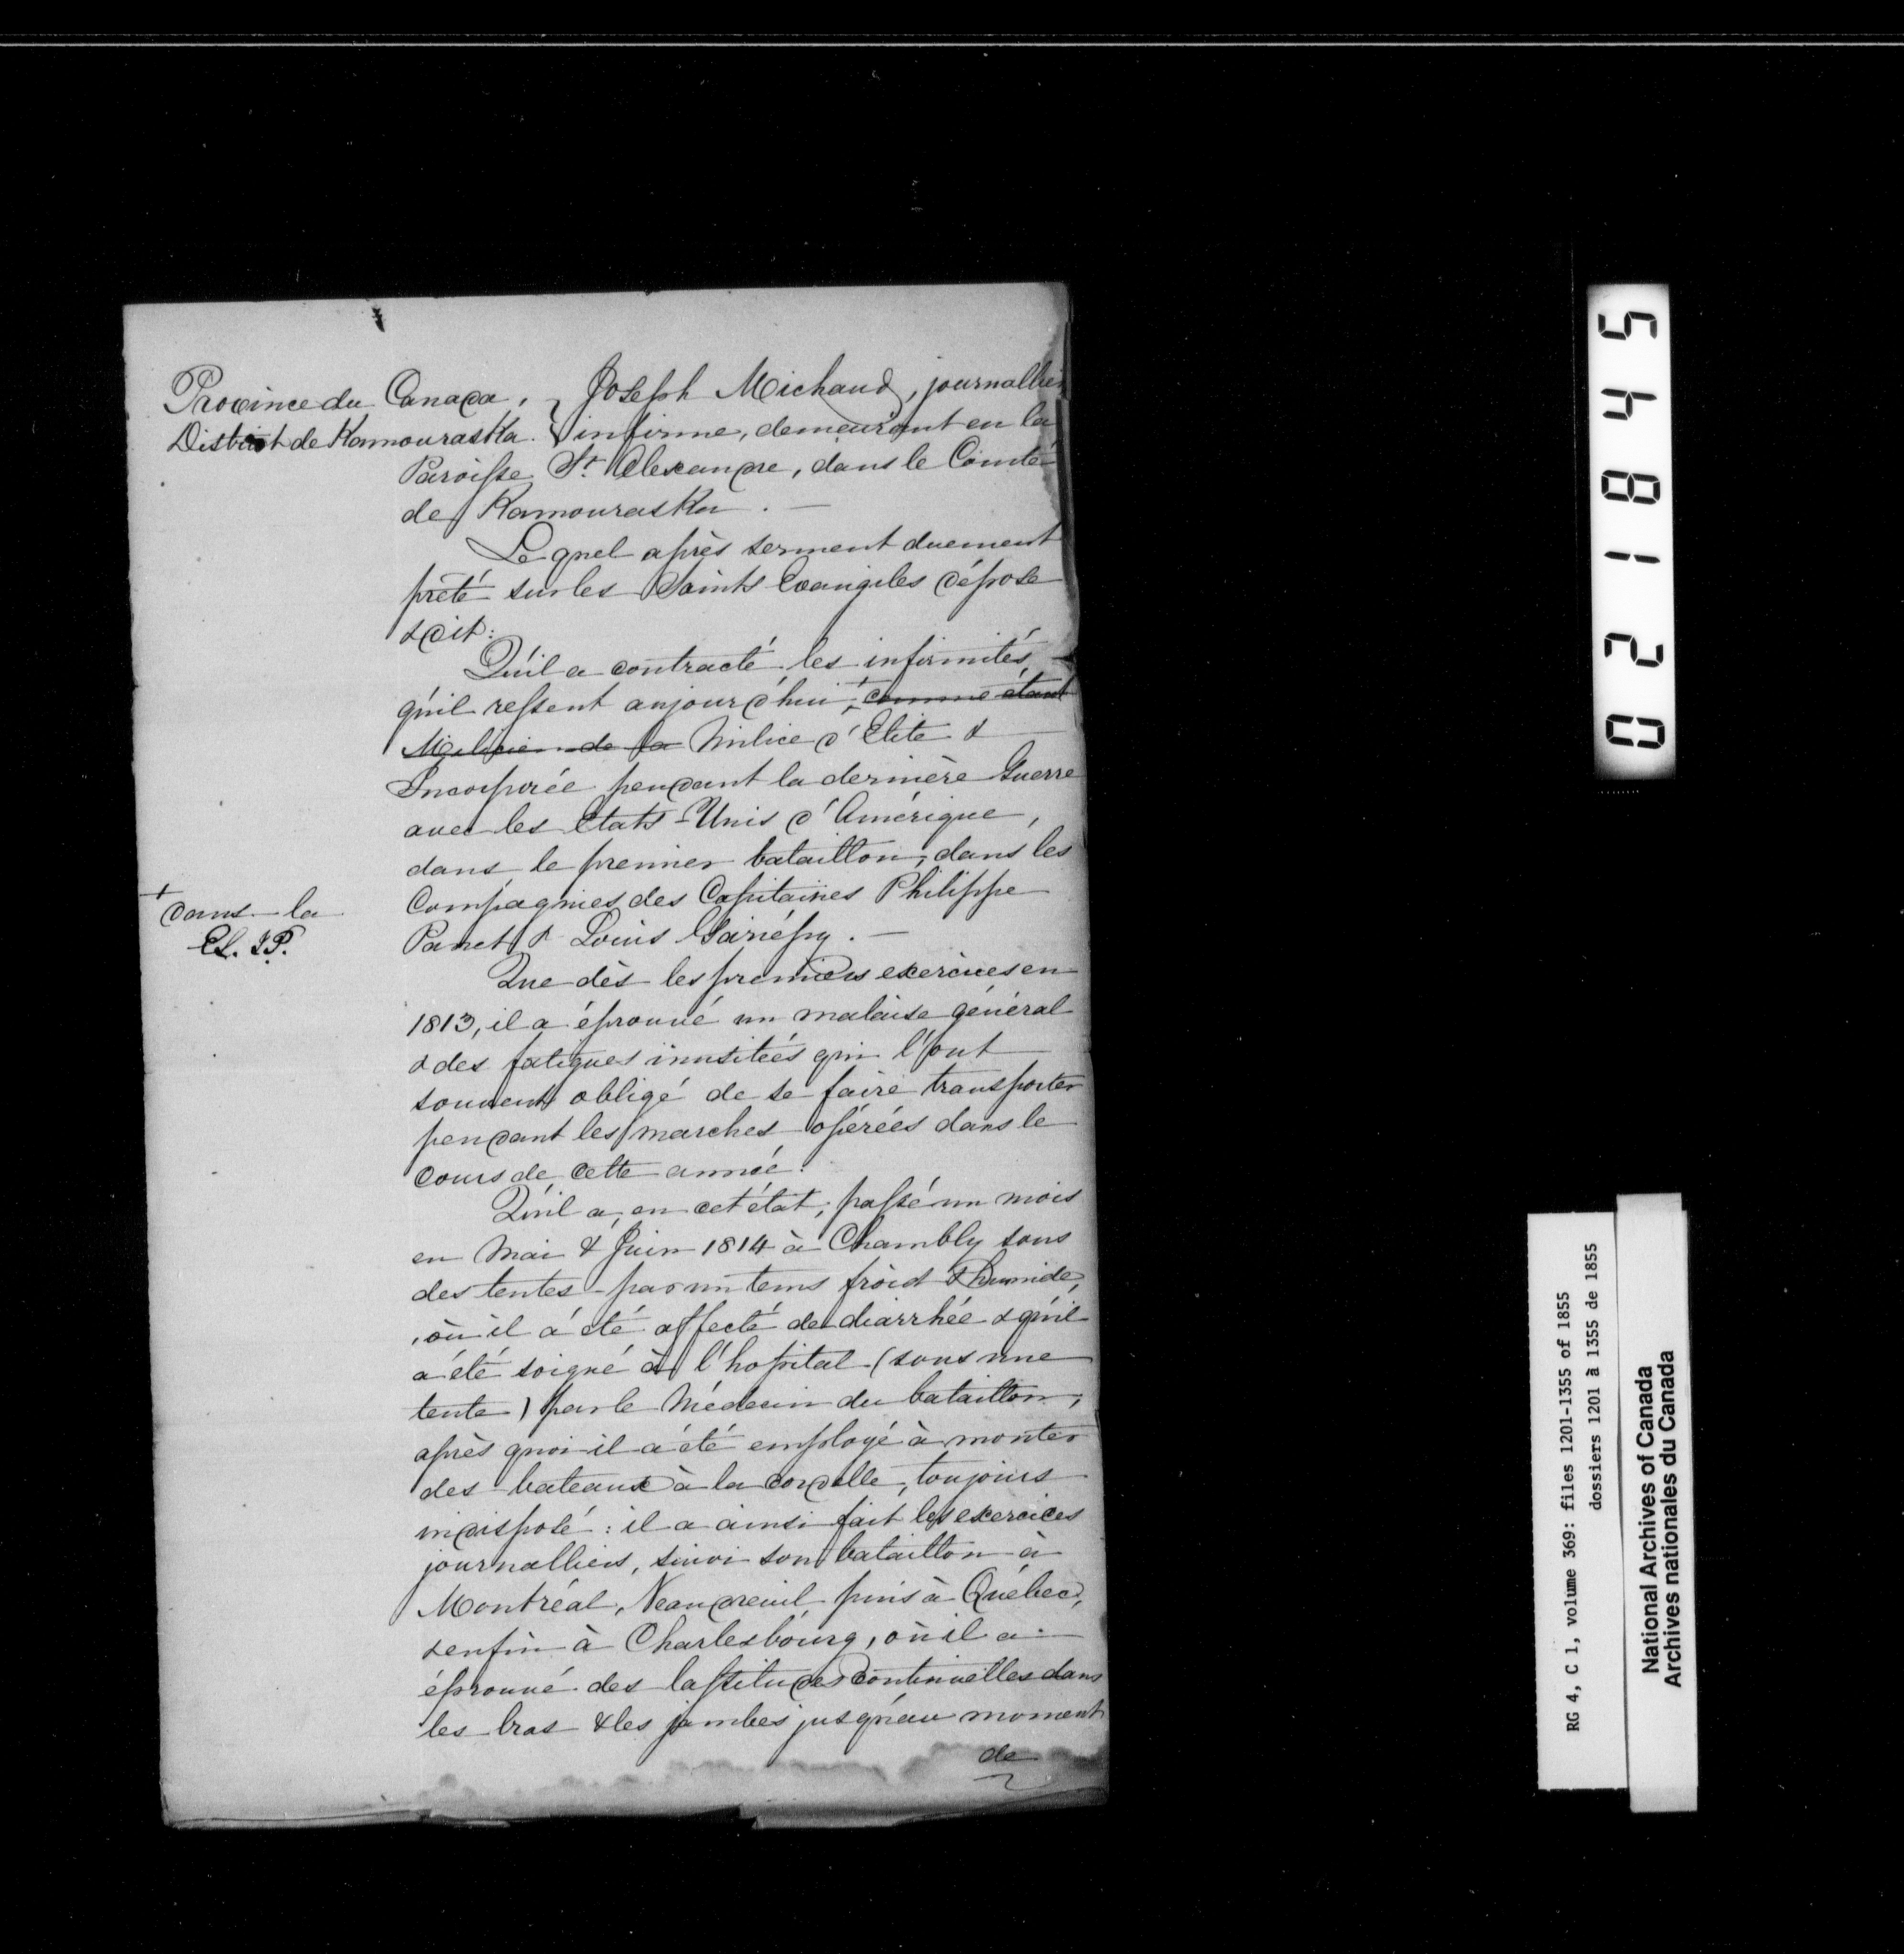 Province du Canada, } Joseph Michaud, journallier
District de Kamouraska. } infirme, demeurant en la
Paroisse St. Alexandre, dans le Comté
de Kamouraska. —
Lequel après serment duement
prêté sur les Saints Evangiles dépose
& dit:
Qu'il a contracté les infirmités
qu'il ressent aujourd'hui, + comme étant
Milicien de la Milice d'Elite &
Incorporée pendant la dernière Guerre
avec les Etats-Unis d'Amérique,
dans le premier bataillon, dans les
Compagnies des Capitaines Philippe
Panet & Louis Gariépy. —
+
dans la
Que dès les premiers exercices en
1813, il a éprouvé un malaise général
& des fatigues inusitées qui l'ont
souvent obligé de se faire transporter
pendant les marches opérées dans le
cours de cette année.
Qu'il a, en cet état, passé un mois
en Mai & Juin 1814 à Chambly sous
des tentes par un tems froid & humide,
, où il a été affecté de diarrhée & qu'il
a été soigné à l'hopital (sous une
tente) par le Médecin du bataillon,
après quoi il a été employé à monter
des bateaux à la cordelle, toujours
indisposé: il a ainsi fait les exercices
journalliers, suivi son bataillon à
Montréal, Vaudreuil, puis à Québec,
& enfin à Charlesbourg, où il a
éprouvé des lassitudes continuelles dans
les bras & les jambes jusqu'au moment
de
021845
RG 4, C 1, volume 369: files 1201-1355 of 1855
dossiers 1201 à 1355 de 1855
National Archives of Canada
Archives nationales du Canada